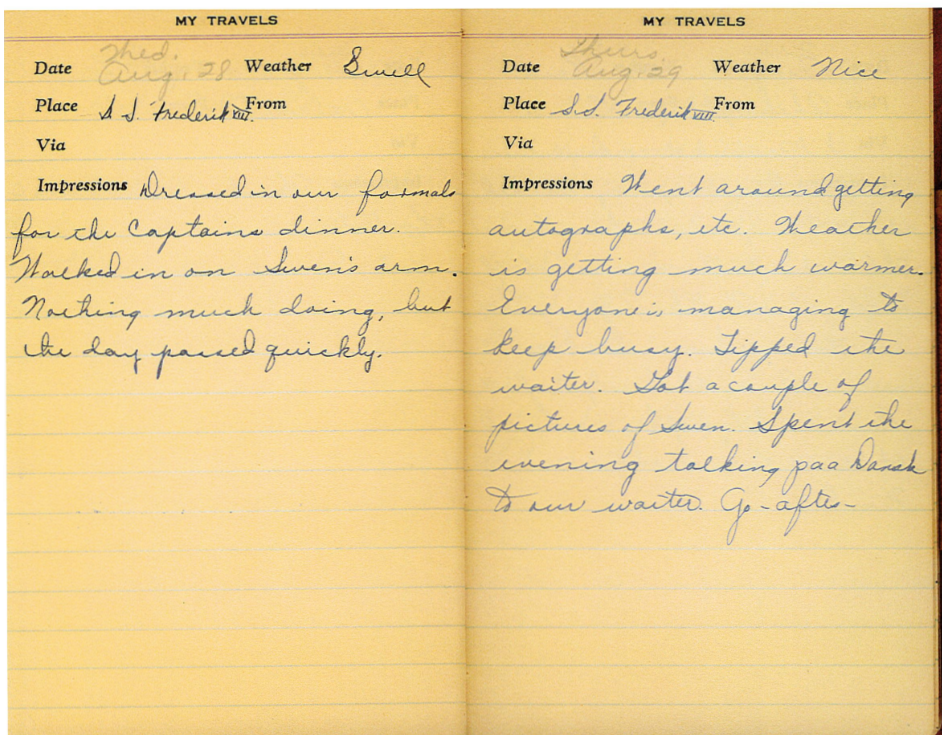 MY TRAVELS
Wed.
Date Aug. 28 Weather Swell
Place S.S. Frederik VIII. From
Via
Impressions Dressed in our formals
for the Captains dinner.
Walked in on Swen's arm.
Nothing much doing, but
the day passed quickly.
MY TRAVELS
Thurs.
Date Aug. 29 Weather Nice
Place S.S. Frederik VIII From
Via
Impressions Went around getting
autographs, etc. Weather
is getting much warmer.
Everyone is managing to
keep busy. Tipped the
waiter. Got a couple of
pictures of Swen. Spent the
evening talking paa Dansk
to our waiter. Go-aften-